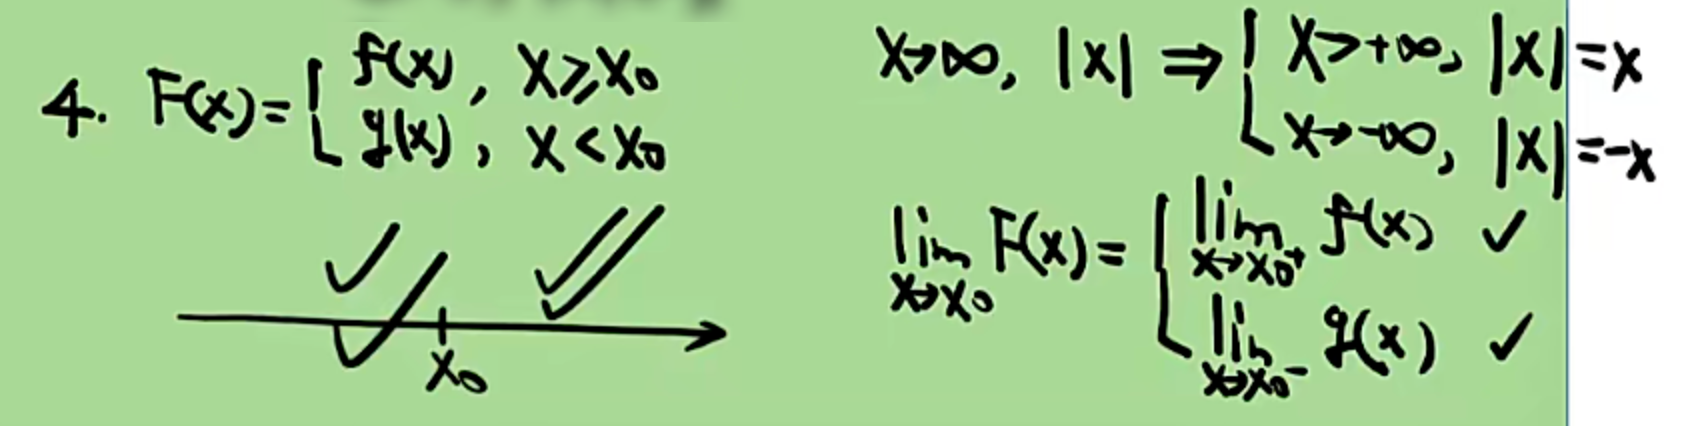 4. F(x)= { f(x), x⩾x₀
g(x), x<x₀
x₀
x→∞, |x| ⇒ { x→+∞, |x|=x
x→-∞, |x|=-x
lim x→x₀ F(x)= { lim x→x₀⁺ f(x) ✓
lim x→x₀⁻ g(x) ✓